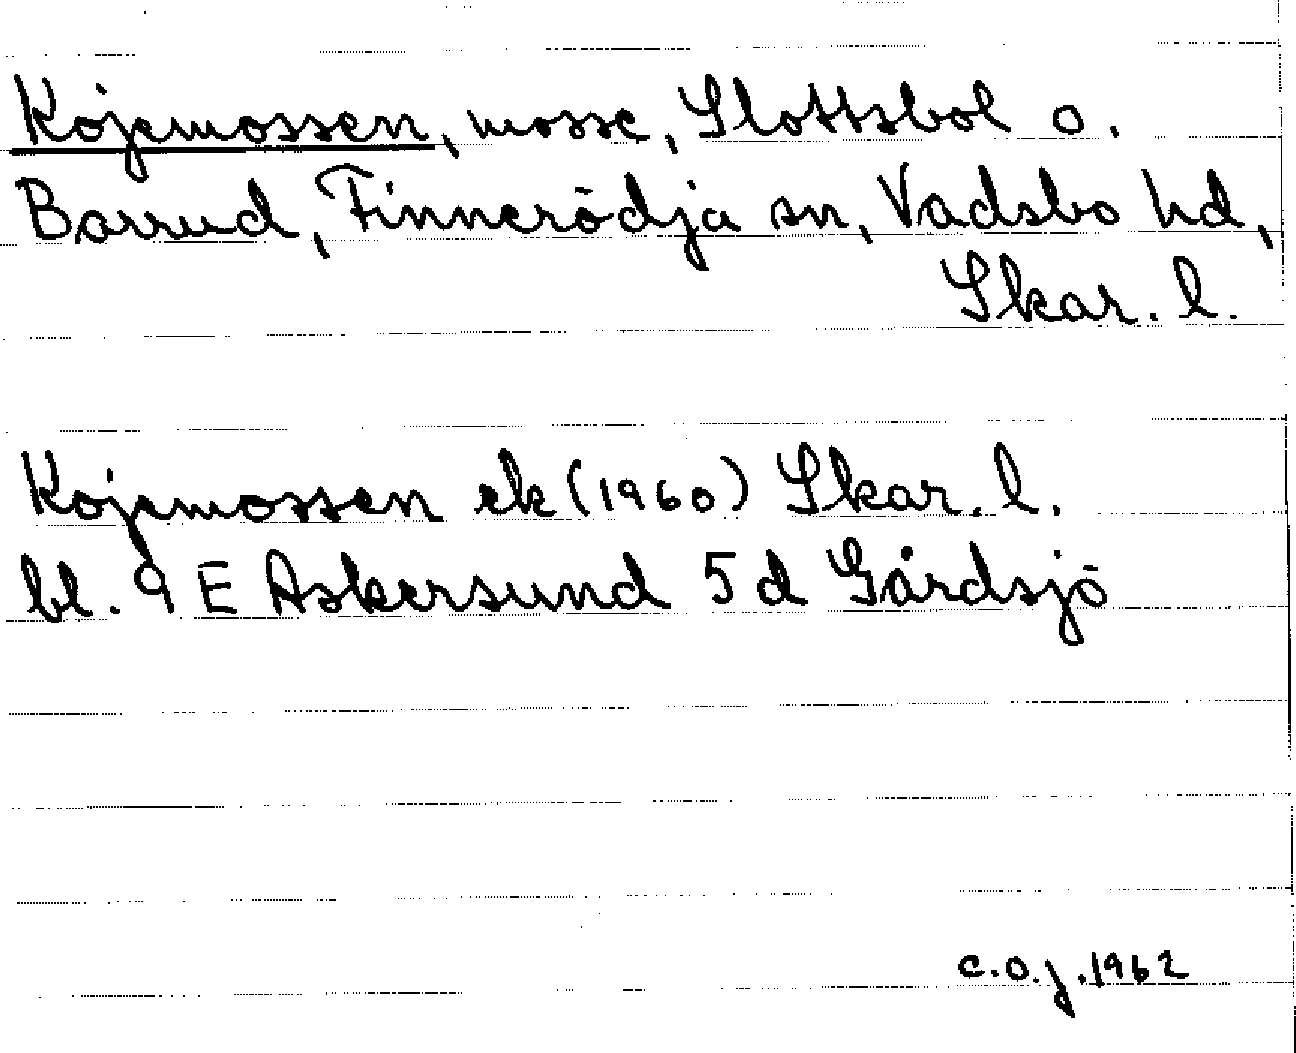 Kojemossen, mosse, Slottsbol o.
Barrud, Finnerödja sn, Vadsbo hd,
Skar. l.
Kojemossen ek (1960) Skar. l.
bl. 9 E Askersund 5 d Gårdsjö
c.o.j. 1962